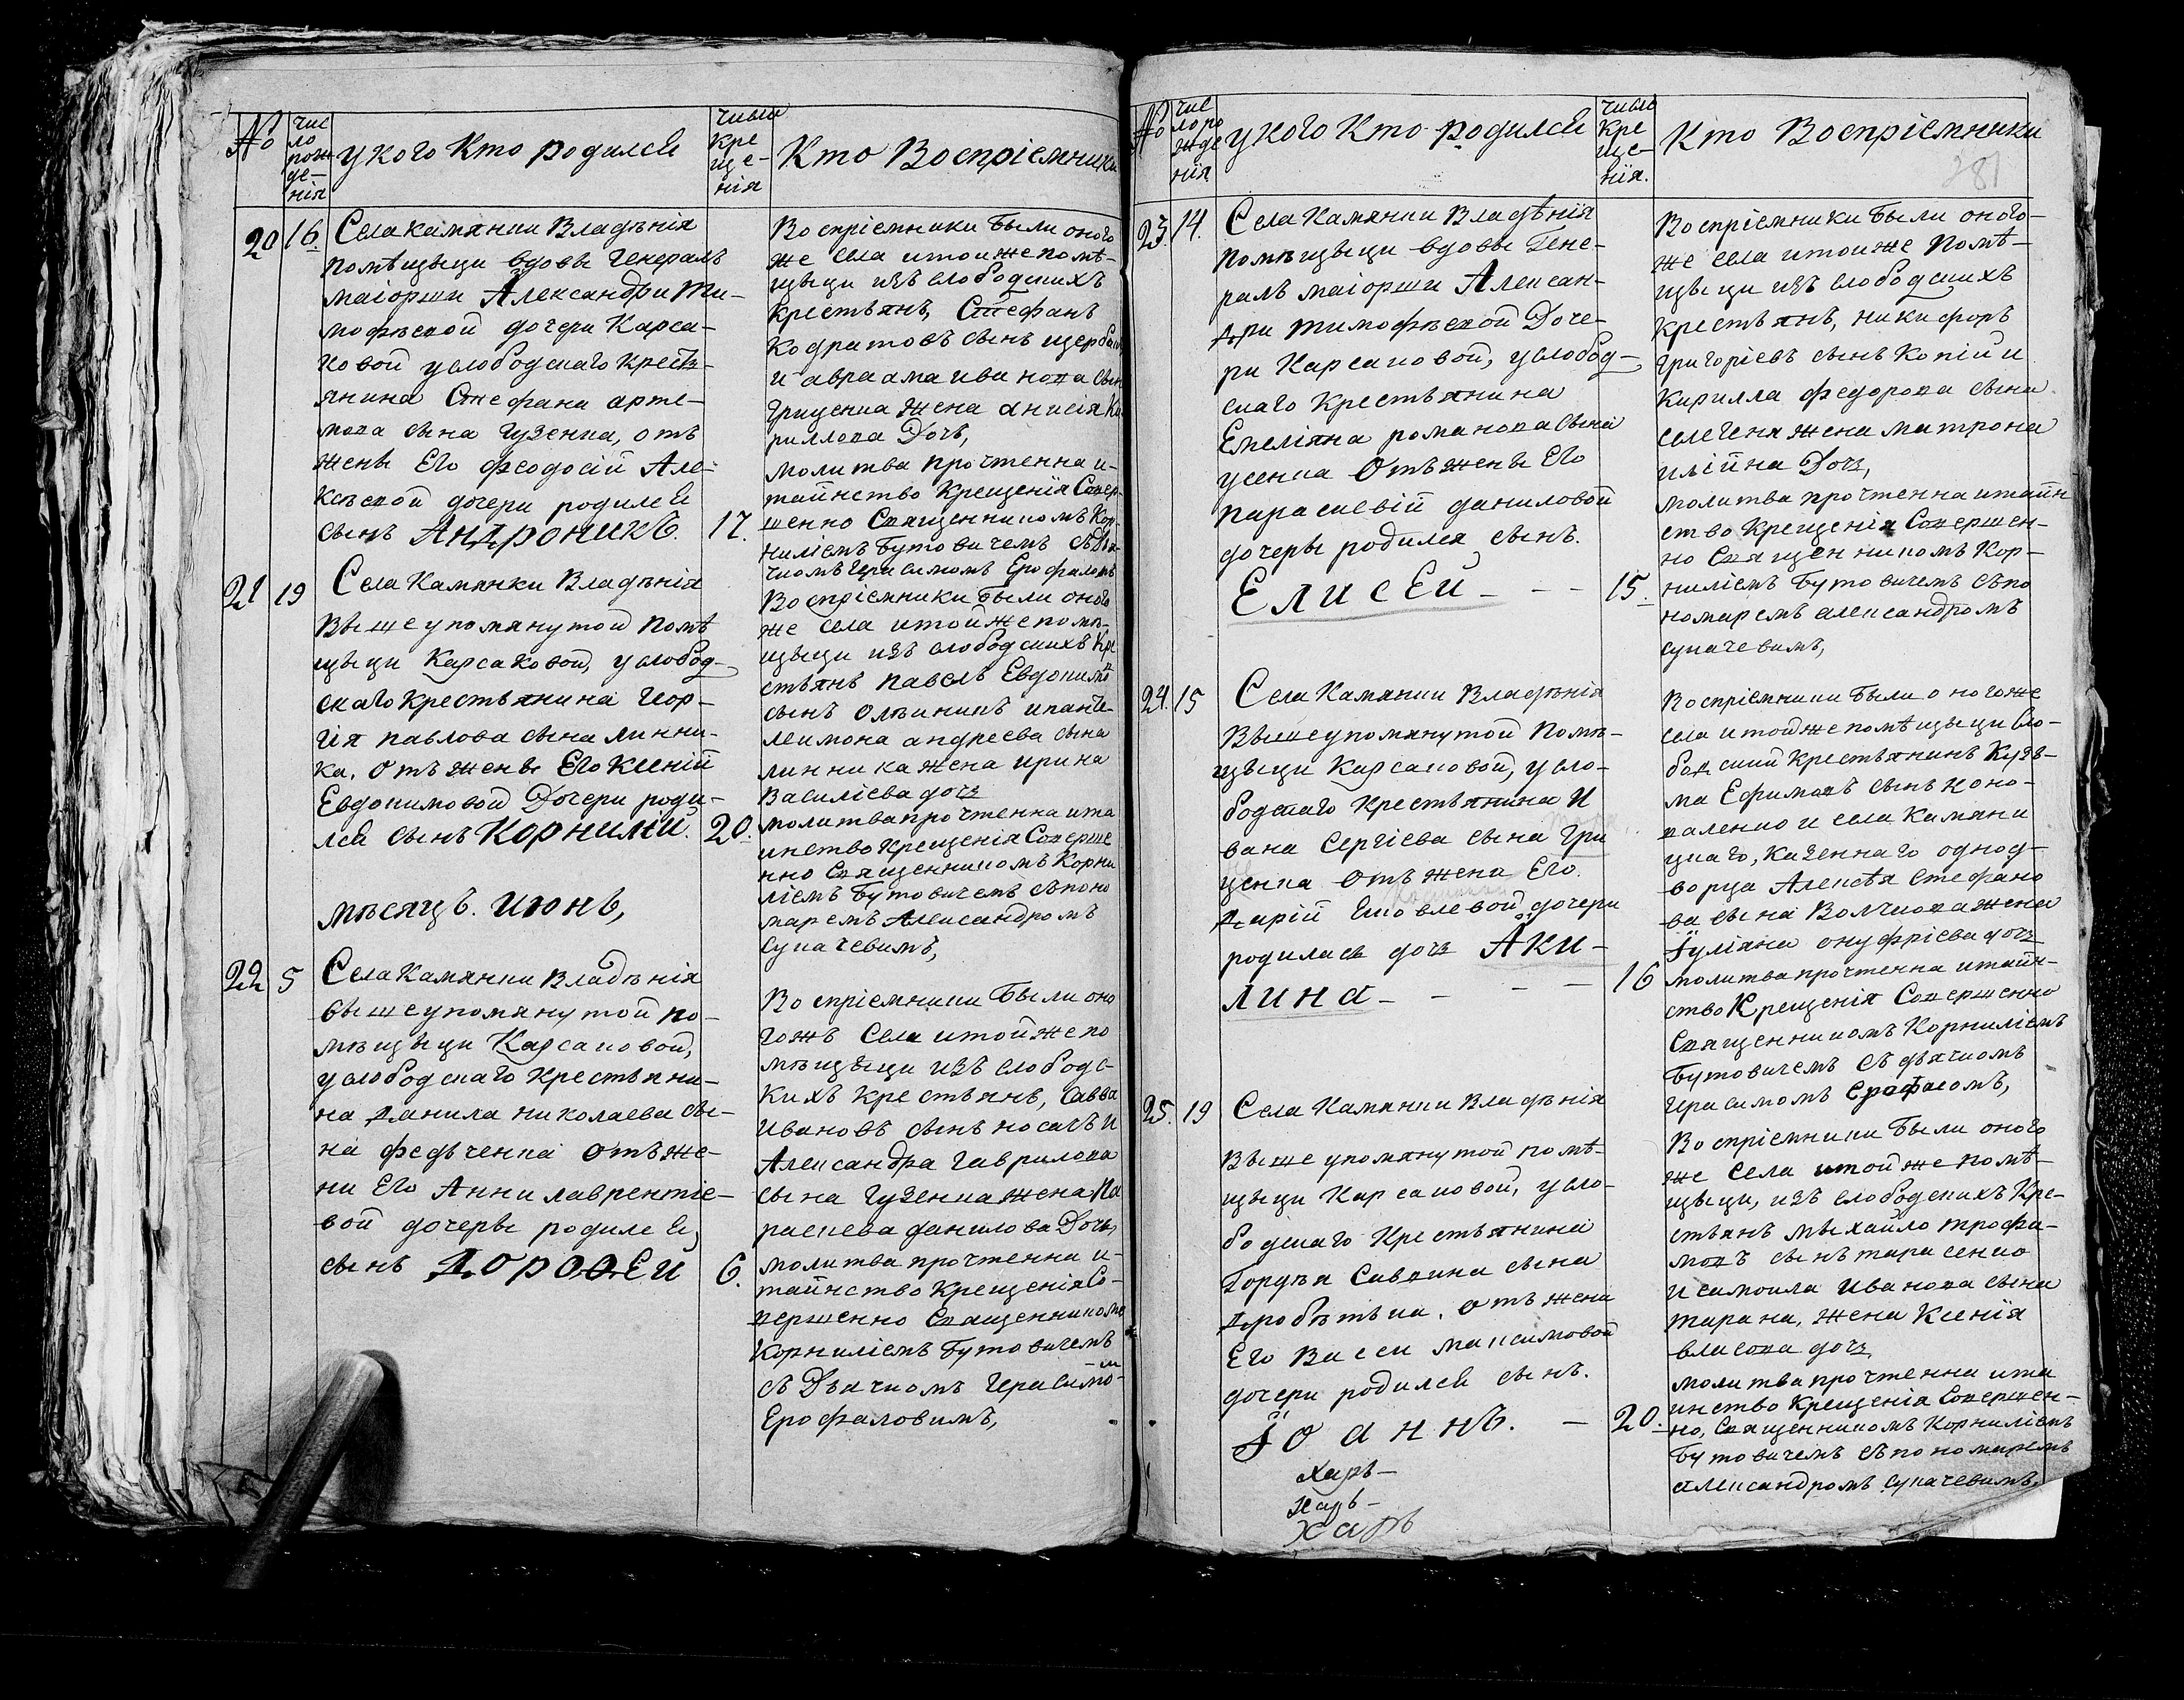 №
чис
ло
рож
де-
нія
укого Кто родился
число
кре
ще-
нія
Кто Воспріемники
20
16
Села Камянки Владѣнія
помѣщыци вдовы Генералъ
маіорши Александри Ти-
мофѣевой дочери Карса-
ковой услободскаго Кресть-
янина Стефана арте-
мова сына Гузенка, отъ
жены Его феодосій Але-
ксѣевой дочери родился
сынъ АНДРОНИКЪ.
17.
Воспріемники были оного
же села итоиже помѣ-
щыци изъ слободскихъ
Крестьянъ, Стефанъ
Кодратовъ сынъ щерба
и авраама иванова сына
Грищенка жена анисія Ки
риллова Дочь,
молитва прочтенна и-
таинство Крещенія Совер-
шенно Священникомъ Кор-
ниліемъ Бутовичемъ съ Дья-
чкомъ Герасимомъ Ерофаловымъ
21
19
Села Камянки Владѣнія
Вышеупомянутой помѣ
щыци Карсаковой, услобод-
скаго крестьянина Геор-
гія павлова сына линни-
ка. Отъ жены Его Ксеній
Евдокимовой Дочери роди-
лся сынъ КОРНИЛИЙ.
20.
Воспріемники были оного
же села итойже помѣ-
щыци изъ слободскихъ Кре
стьянъ павелъ Евдокимо
сынъ Олѣиникъ ипанте-
леимона андреева сына
линника жена ирина
Василіева дочь
молитва прочтенна ита
инство Крещенія Соверше
нно Священникомъ Корни
ліемъ Бутовичемъ съ поно
маремъ Александромъ
Сукачевимъ,
мѣсяцъ. Июнь,
22
5
Села Камянки Владѣнія
вышеупомянутой по-
мѣщыци Карсаковой,
услободскаго Крестьяни-
на Данила николаева сы-
на федченка Отъ же-
ни Его Анни лаврентіе-
вой дочеры родился,
сынъ ДОРОѲЕЙ
6.
Воспріемники были оно
гожъ Села итойже по
мѣщыци изъ слободс-
кихъ крестьянъ, Савва
Ивановъ сынъ носачъ и
Александра Гаврилова
сына Гузенка жена Па
раскева данилова Дочь,
молитва прочтенна и-
таинство Крещенія Со-
вершенно Священникомъ
Корниліемъ Бутовичемъ
съ Дьячкомъ Герасимо-мъ
Ерофаловимъ,
№
чис
ло ро
жде
нія
укого Кто родился
число
Кре
ще-
нія.
Кто Воспріемники
281
23
14.
Села Камянки Владѣнія
помѣщыци вдовы Гене-
ралъ маіорши Алексан-
дри тимофѣевой Доче-
ри Карсаковой, услобод-
скаго крестьянина
Емеліяна романова сына
усенка Отъ жены Его
параскевій даниловой
дочеры родился сынъ.
ЕЛИСЕЙ - - -
15.
Воспріемники были оного-
же села итоиже помѣ-
щыци изъ слободскихъ
крестьянъ, никифоръ
григоріевъ сынъ Копій и
Кирилла федорова сына
селегеня жена матрона
илійна Дочь,
молитва прочтенна итаин
ство Крещенія Совершен-
но Священникомъ Кор-
ниліемъ Бутовичемъ съ по
номаремъ александромъ
сукачевимъ,
24.
15
Села Камянки Владѣнія
Вышеупомянутой помѣ-
щыци Карсаковой, усло-
бодскаго Крестьянина И
вана Сергіева сына Гри
щенка отъ жена Его.
Дарій Яковлевой дочери
родилась дочь АКИ-
ЛИНА - - - -
16
Воспріемники были оногоже
села итойже помѣщыци Сло-
бодский Крестьянинъ Кузь-
ма Ефимовъ сынъ Коно-
валенко и села Камяни
цкаго, казеннаго однод-
ворца Алексѣя Стефано
ва сына Волчкова жена
Іуліана онуфріева дочь
молитва прочтенна итаин-
ство Крещенія Совершенно
Священникомъ Корниліемъ
Бутовичемъ съ дьячкомъ
Герасимомъ Ерофаломъ,
25.
19
Села Камянки Владѣнія
Вышеупомянутой помѣ-
щыци Карсаковой, усло-
бодскаго Крестьянина
Гордѣя Саввина сына
Дробѣтька. Отъ жена
Его Васси максимовой
дочери родился сынъ.
ІОАННЪ. -
20.
Воспріемники были оного
же Села итой же помѣ-
щыци, изъ слободскихъ Кре-
стьянъ Мыхайло трофи-
мовъ сынъ тарасенко
и самоила иванова сына
тарана, жена Ксенія
власова дочь
молитва прочтенна ита
инство Крещенія Совершен-
но, Священникомъ Корниліемъ
Бутовичемъ съ пономаремъ
Александромъ Сукачевимъ.
Харь-
Харь-
Харь